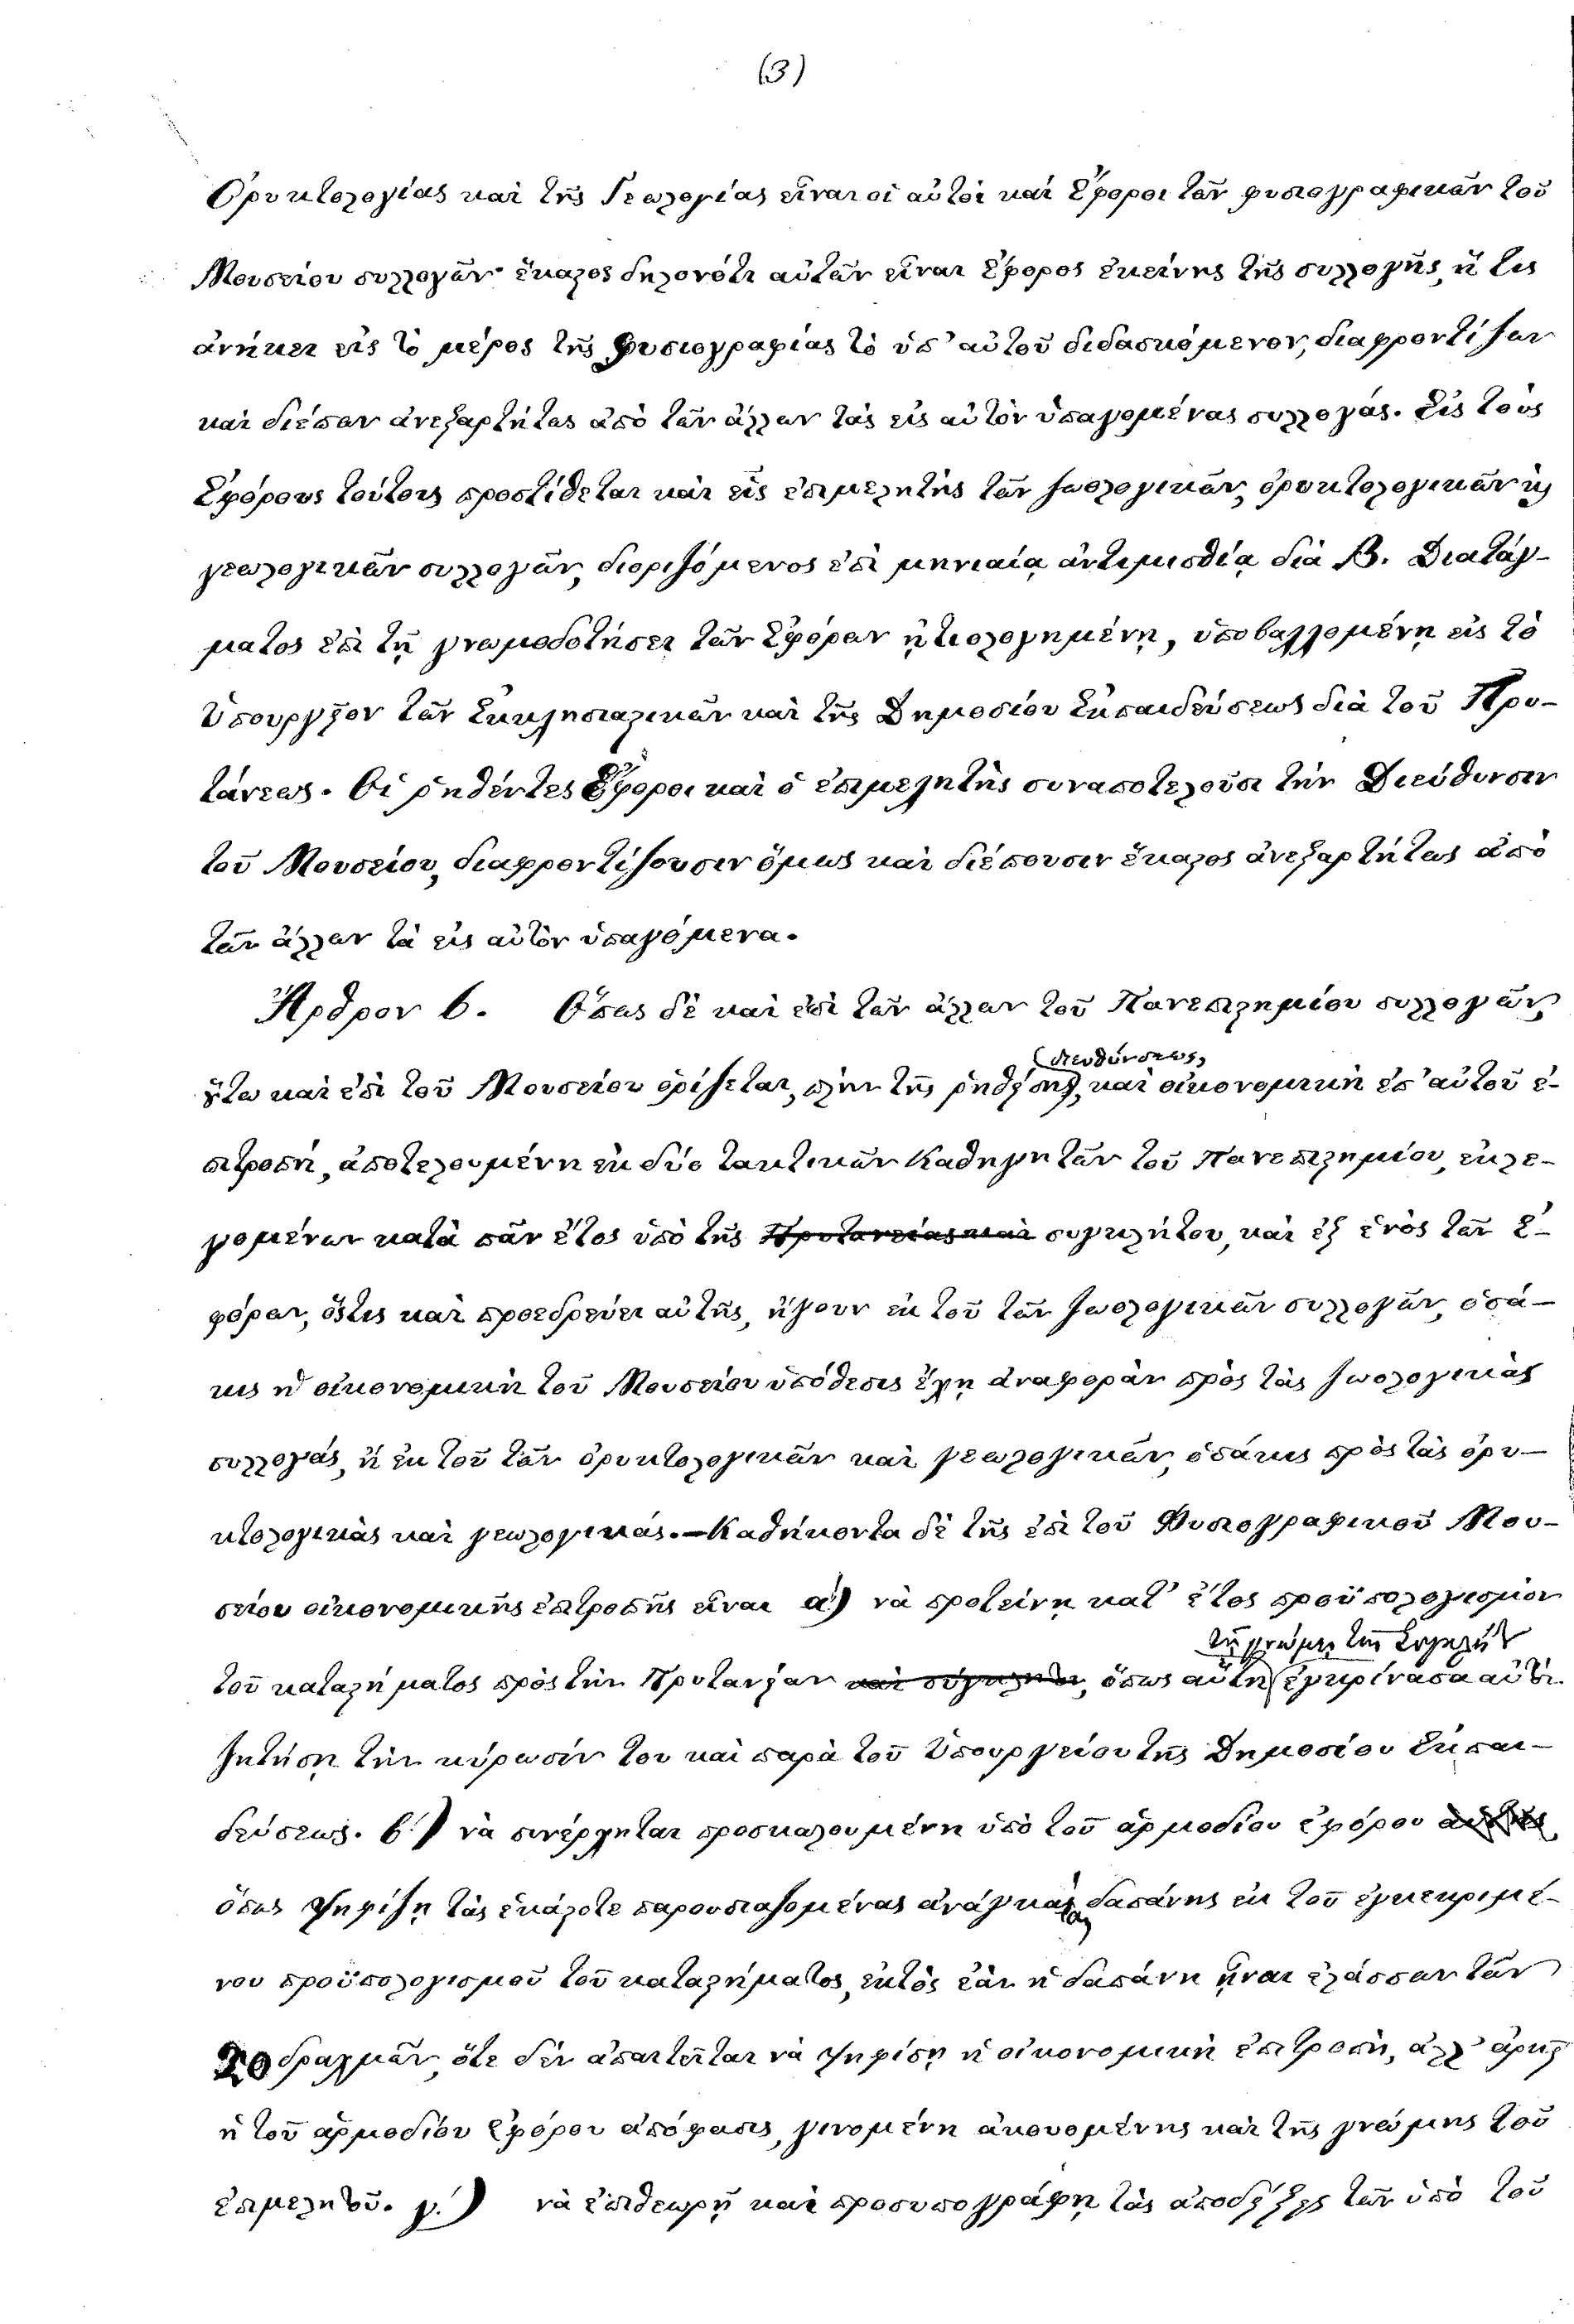 (3)
Ὀρυκτολογίας καὶ τῆς Γεωλογίας εἶναι οἱ αὐτοὶ καὶ Ἔφοροι τῶν φυσιογραφικῶν τοῦ
Μουσείου συλλογῶν· ἕκαστος δηλονότι αὐτῶν εἶναι Ἔφορος ἐκείνης τῆς συλλογῆς, ἥ τις
ἀνήκει εἰς τὸ μέρος τῆς Φυσιογραφίας τὸ ὑπ' αὐτοῦ διδασκόμενον, διαφροντίζων
καὶ διέπων ἀνεξαρτήτως ἀπὸ τῶν ἄλλων τὰς εἰς αὐτὸν ὑπαγομένας συλλογάς. Εἰς τοὺς
Ἐφόρους τούτους προστίθεται καὶ εἷς ἐπιμελητὴς τῶν ζωολογικῶν, ὀρυκτολογικῶν ϗ
γεωλογικῶν συλλογῶν, διοριζόμενος ἐπὶ μηνιαίᾳ ἀντιμισθίᾳ διὰ Β. Διατάγ-
ματος ἐπὶ τῇ γνωμοδοτήσει τῶν Ἐφόρων ᾐτιολογημένῃ, ὑποβαλλομένῃ εἰς τὸ
Ὑπουργεῖον τῶν Ἐκκλησιαστικῶν καὶ τῆς Δημοσίου Ἐκπαιδεύσεως διὰ τοῦ Πρυ-
τάνεως. Οἱ ῥηθέντες Ἔφοροι καὶ ὁ ἐπιμελητὴς συναποτελοῦσι τὴν Διεύθυνσιν
τοῦ Μουσείου, διαφροντίζουσιν ὅμως καὶ διέπουσιν ἕκαστος ἀνεξαρτήτως ἀπὸ
τῶν ἄλλων τὰ εἰς αὐτὸν ὑπαγόμενα.
Ἄρθρον 6. Ὅπως δὲ καὶ ἐπὶ τῶν ἄλλων τοῦ Πανεπιστημίου συλλογῶν,
διευθύνσεως,
οὕτω καὶ ἐπὶ τοῦ Μουσείου ὁρίζεται, πλὴν τῆς ῥηθείσης, καὶ οἰκονομικὴ ἐπ' αὐτοῦ ἐ-
πιτροπή, ἀποτελουμένη ἐκ δύο τακτικῶν Καθηγητῶν τοῦ Πανεπιστημίου, ἐκλε-
γομένων κατὰ πᾶν ἔτος ὑπὸ τῆς Πρυτανείας καὶ συγκλήτου, καὶ ἐξ ἑνὸς τῶν Ἐ-
φόρων, ὅστις καὶ προεδρεύει αὐτῆς, ἤγουν ἐκ τοῦ τῶν ζωολογικῶν συλλογῶν, ὁσά-
κις ἡ οἰκονομικὴ τοῦ Μουσείου ὑπόθεσις ἔχῃ ἀναφορὰν πρὸς τὰς ζωολογικὰς
συλλογάς, ἢ ἐκ τοῦ τῶν ὀρυκτολογικῶν καὶ γεωλογικῶν, ὁσάκις πρὸς τὰς ὀρυ-
κτολογικὰς καὶ γεωλογικάς.—Καθήκοντα δὲ τῆς ἐπὶ τοῦ Φυσιογραφικοῦ Μου-
σείου οἰκονομικῆς ἐπιτροπῆς εἶναι α΄) νὰ προτείνῃ κατ' ἔτος προϋπολογισμὸν
τῇ γνώμῃ τῆς Συγκλήτ
τοῦ καταστήματος πρὸς τὴν Πρυτανείαν καὶ σύγκλητον, ὅπως αὕτη ἐγκρίνασα αὐτὸ.
ζητήσῃ τὴν κύρωσίν του καὶ παρὰ τοῦ Ὑπουργείου τῆς Δημοσίου Ἐκπαι-
δεύσεως. β΄) νὰ συνέρχηται προσκαλουμένη ὑπὸ τοῦ ἁρμοδίου ἐφόρου
ὅπως ψηφίζῃ τὰς ἑκάστοτε παρουσιαζομένας ἀνάγκας δαπάνης ἐκ τοῦ ἐγκεκριμέ-
νου προϋπολογισμοῦ τοῦ καταστήματος, ἐκτὸς ἐὰν ἡ δαπάνη ᾖναι ἐλάσσων τῶν
20 δραχμῶν, ὅτε δὲν ἀπαιτεῖται νὰ ψηφίσῃ ἡ οἰκονομικὴ ἐπιτροπή, ἀλλ' ἀρκεῖ
ἡ τοῦ ἁρμοδίου Ἐφόρου ἀπόφασις, γινομένη ἀκουομένης καὶ τῆς γνώμης τοῦ
ἐπιμελητοῦ. γ΄.) νὰ ἐπιθεωρῇ καὶ προσυπογράφῃ τὰς ἀποδείξεις τῶν ὑπὸ τοῦ